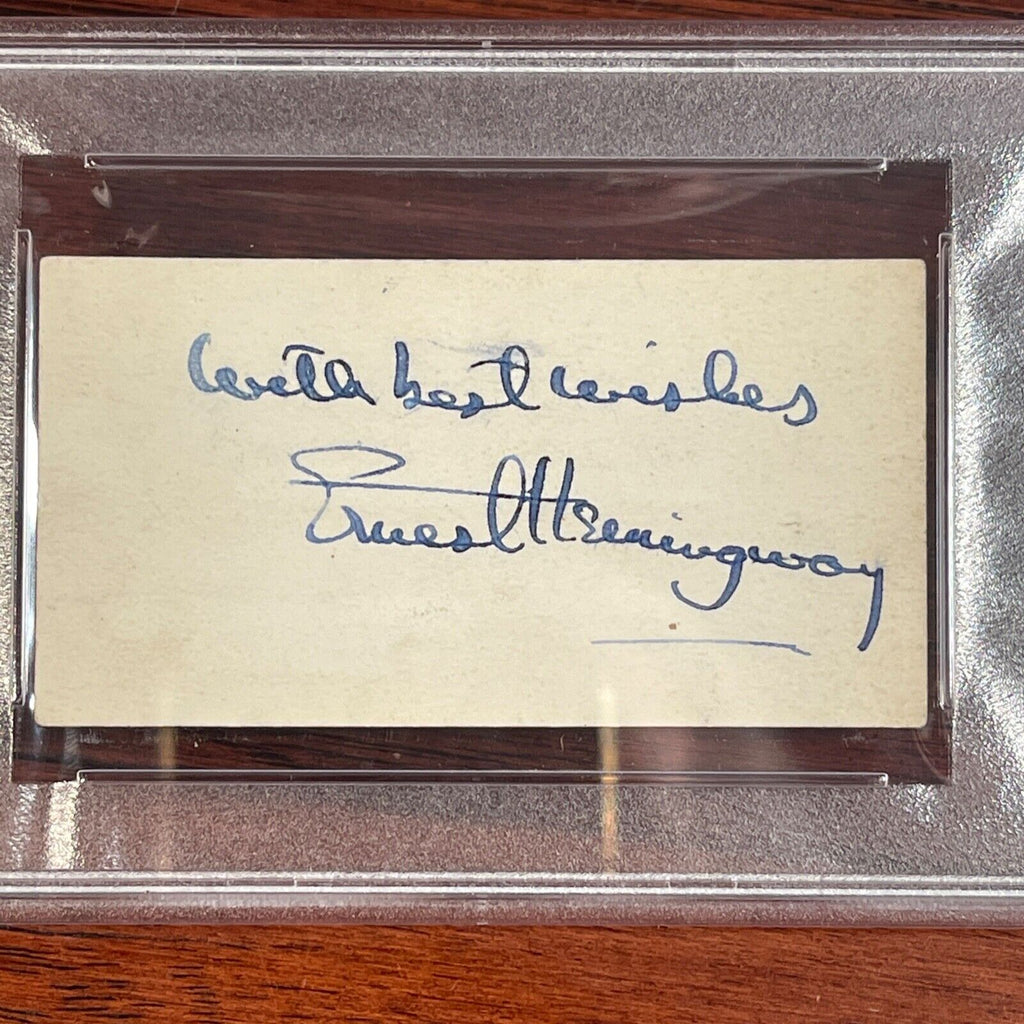 with best wishes
Ernest Hemingway